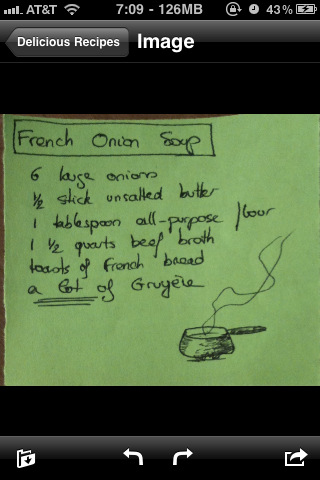 AT&T 7:09 - 126MB 43%
Delicious Recipes Image
French Onion Soup
6 large onions
½ stick unsalted butter
1 tablespoon all-purpose flour
1 ½ quarts beef broth
toasts of French bread
a lot of Gruyère